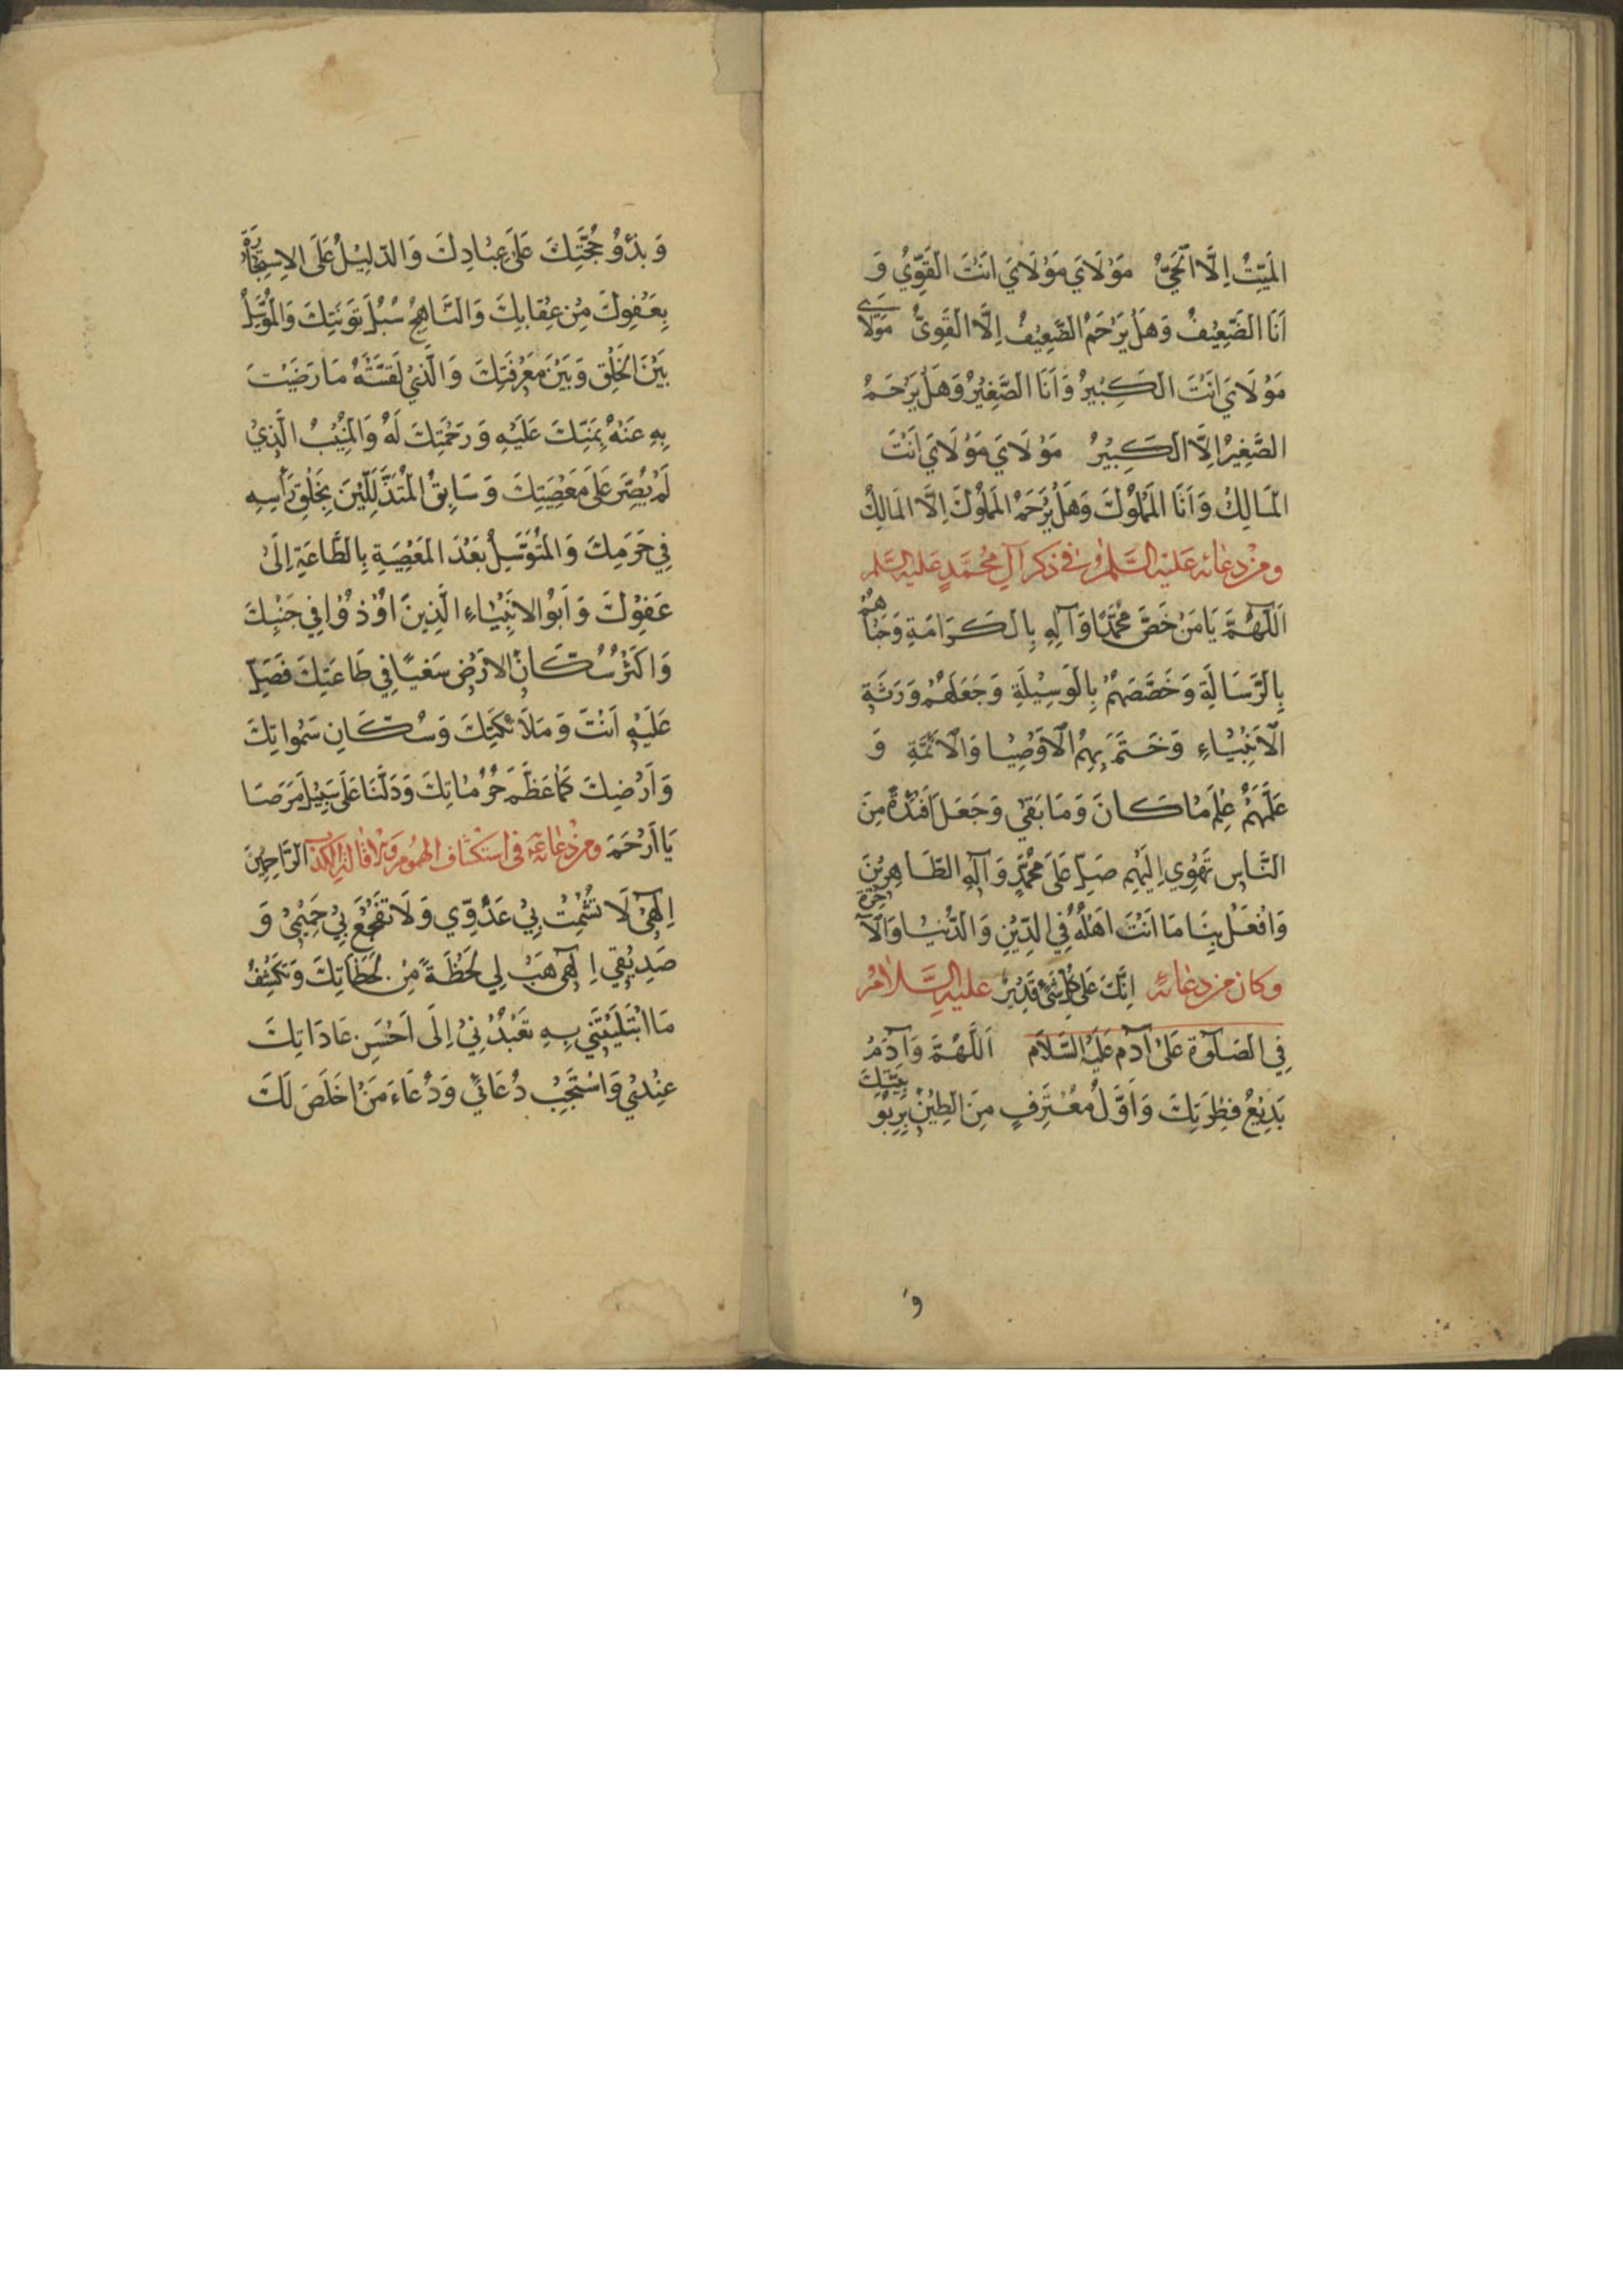 المَيِّتَ اِلَّا الحَيُّ مَوْلَايَ مَوْلَايَ اَنْتَ القَوِّيُ وَ
اَنَا الضَّعِيْفُ وَهَلْ يَرْحَمُ الضَّعِيْفَ اِلَّا القَوِىُّ مَوْلَاىَ
مَوْلَايَ اَنْتَ الكَبِيْرُ وَاَنَا الصَّغِيْرُ وَهَلْ يَرْحَمُ
الصَّغِيْرَ اِلَّا الكَبِيْرُ مَوْلَايَ مَوْلَايَ اَنْتَ
المَالِكُ وَاَنَا المَمْلُوْكُ وَهَلْ يَرْحَمُ المَمْلُوْكَ اِلَّا المَالِكُ
ومن دعائه عليه السلام في ذكر آل محمد عليه السلم
اَللّٰهُمَّ يَا مَنْ خَصَّ مُحَمَّدًا وَآلِهِ بِالكَرَامَةِ وَحَبَاهُمْ
بِالرَّسَالَةِ وَخَصَّصَهُمْ بِالوَسِيْلَةِ وَجَعَلَهُمْ وَرَثَةِ
الْاَنْبِيَاءِ وَخَتَمَ بِهِمُ الْاَوْصِيَا وَالْاَئمَّةِ وَ
عَلَّمَهُمْ عِلْمَ مَا كَانَ وَمَا بَقِيَ وَجَعَلَ اَفْئدَةً مِنَ
النَّاسِ تَهْوِي اِلَيْهِم صَلِّ عَلَى مُحَمَّدٍ وَآلِهِ الطَّاهِرِيْنَ
وَافْعَلْ بِنَا مَا اَنْتَ اَهْلُهُ فِي الدِّيْنِ وَالدُّنْيَا وَالآخِرَةِ
وكان من دعائه اِنَّكَ عَلَى كُلِّ شَيْءٍ قَدِيْرٌ عليه السلام
فِي الصَّلٰوةِ عَلَى آدَم عَلَيْهِ السَّلَام اَللّٰهُمَّ وَآدَمُ
بَدِيْعُ فِطْرَتِكَ وَاَوَّلُ مُعْتَرِفٍ مِنَ الطِيْنِ بِرِبُوْبِيَّتِكَ
وَ
وَبَدْؤُ حُجَّتِكَ عَلَى عِبَادِكَ وَالدَلِيْلُ عَلَى الاِسْتِجَارَةِ
بِعَفْوِكَ مِنْ عِقَابِكَ وَالنَّاهِجُ سُبُلَ تَوبَتِكَ وَالمُوَسِّلُ
بَيْنَ الخَلْقِ وَبَيْنَ مَعْرِفَتِكَ وَالَّذِيْ لَقَّنْتَهُ مَا رَضِيْتَ
بِهِ عَنْهُ بِمَنِّكَ عَلَيْهِ وَرَحْمَتِكَ لَهُ وَالمُنِيْبُ الَّذِيْ
لَمْ يُصِّرَ عَلَى مَعْصِيَتِكَ وَسَابِقُ المُتَذَلِّلِيْنَ بِحَلْقِ رَأْسِهِ
فِي حَرَمِكَ وَالمُتَوَسِّلُ بَعْدَ المَعْصِيَةِ بِالطَّاعَةِ اِلَى
عَفْوِكَ وَاَبُو الاَنْبِيَاءِ الَّذِيْنَ اُوْذُوْا فِي جَنْبِكَ
وَاكَثْرُ سُكَّانِ الاَرْضِ سَعْيًا فِي طَاعَتِكَ فَصَلِّ
عَلَيْهِ اَنْتَ وَمَلَائكَتِكَ وَسُكَّانِ سَمٰوَاتِكَ
وَاَرْضِكَ كَمَا عَظَّمَ حُرُمَاتِكَ وَدَلَّنَا عَلَى سَبِيْلِ مَرَضَا
يَا اَرْحَمَ ومن دعائه في استكشاف الهموم الرَّاحِمِيْنَ
اِلٰهِيْ لَا تُشْمِتْ بِيْ عَدُّوِي وَلَا تَفْجَعْ بِيْ حَمِيْمِيْ وَ
صَدِيْقِي اِلٰهِي هَبْ لِي لَحْظَةً مِنْ لَحَظَاتِكَ وَتَكْشِفُ
مَا ابْتَلَيْتَنِي بِهِ تَعْبُدُنِيْ اِلَى اَحْسَنِ عَادَاتِكَ
عِنْدِيْ وَاسْتَجِبْ دُعَائي وَدُعَاءَ مَنْ اَخْلَصَ لَكَ